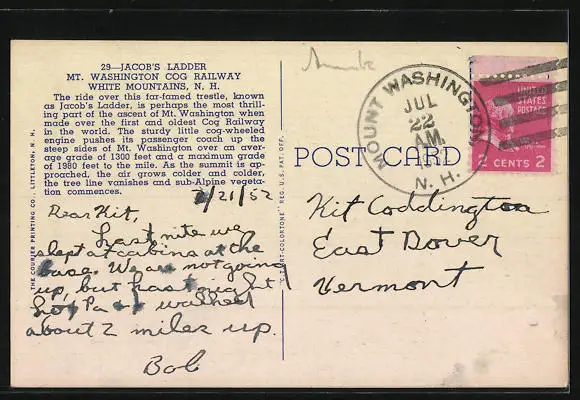 29—JACOB'S LADDER
MT. WASHINGTON COG RAILWAY
WHITE MOUNTAINS, N. H.
The ride over this far-famed trestle, known
as Jacob's Ladder, is perhaps the most thrill-
ing part of the ascent of Mt. Washington when
made over the first and oldest Cog Railway
in the world. The sturdy little cog-wheeled
engine pushes its passenger coach up the
steep sides of Mt. Washington on an aver-
age grade of 1300 feet and a maximum grade
of 1980 feet to the mile. As the summit is ap-
proached, the air grows colder and colder,
the tree line vanishes and sub-Alpine vegeta-
tion commences.
7/21/52
Dear Kit,
Last nite we
slept at cabins at the
base. We are not going
up, but last night
Pa + I walked
about 2 miles up.
Bob
THE COURIER PRINTING CO., LITTLETON, N. H.
"C.T. ART-COLORTONE" REG. U.S. PAT. OFF.
POST CARD
MOUNT WASHINGTON
JUL
22
AM
N. H.
UNITED
STATES
POSTAGE
2 CENTS 2
Kit Coddington
East Dover
Vermont